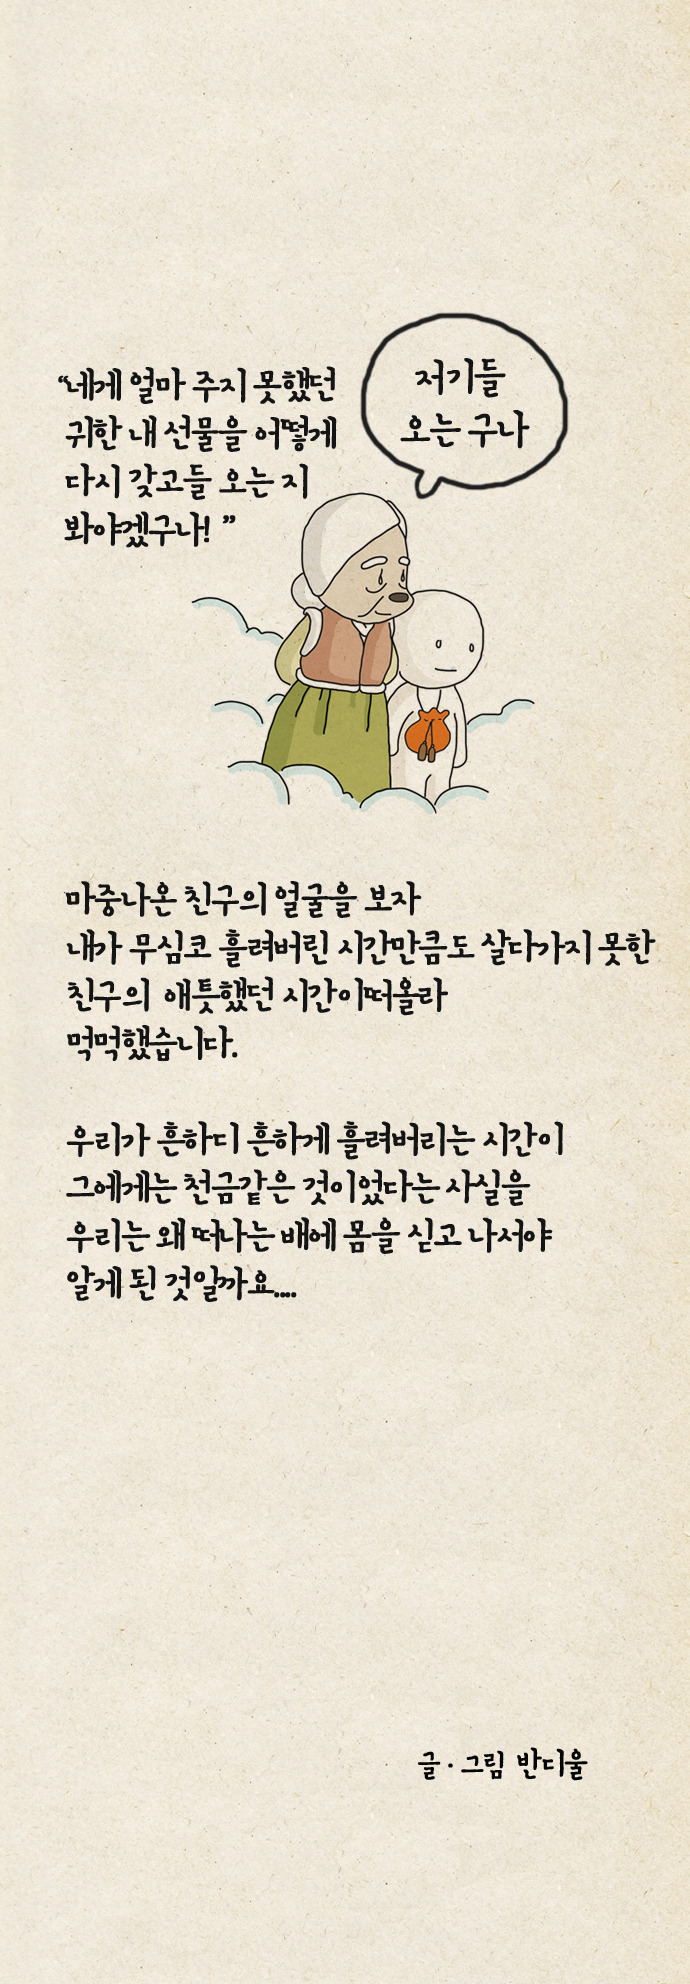 “네게 얼마 주지 못했던
귀한 내 선물을 어떻게
다시 갖고들 오는 지
봐야겠구나! ”
저기들
오는 구나
마중나온 친구의 얼굴을 보자
내가 무심코 흘려버린 시간만큼도 살다가지 못한
친구의 애틋했던 시간이떠올라
먹먹했습니다.
우리가 흔하디 흔하게 흘려버리는 시간이
그에게는 천금같은 것이었다는 사실을
우리는 왜 떠나는 배에 몸을 싣고 나서야
알게 된 것일까요....
글 · 그림 반디울